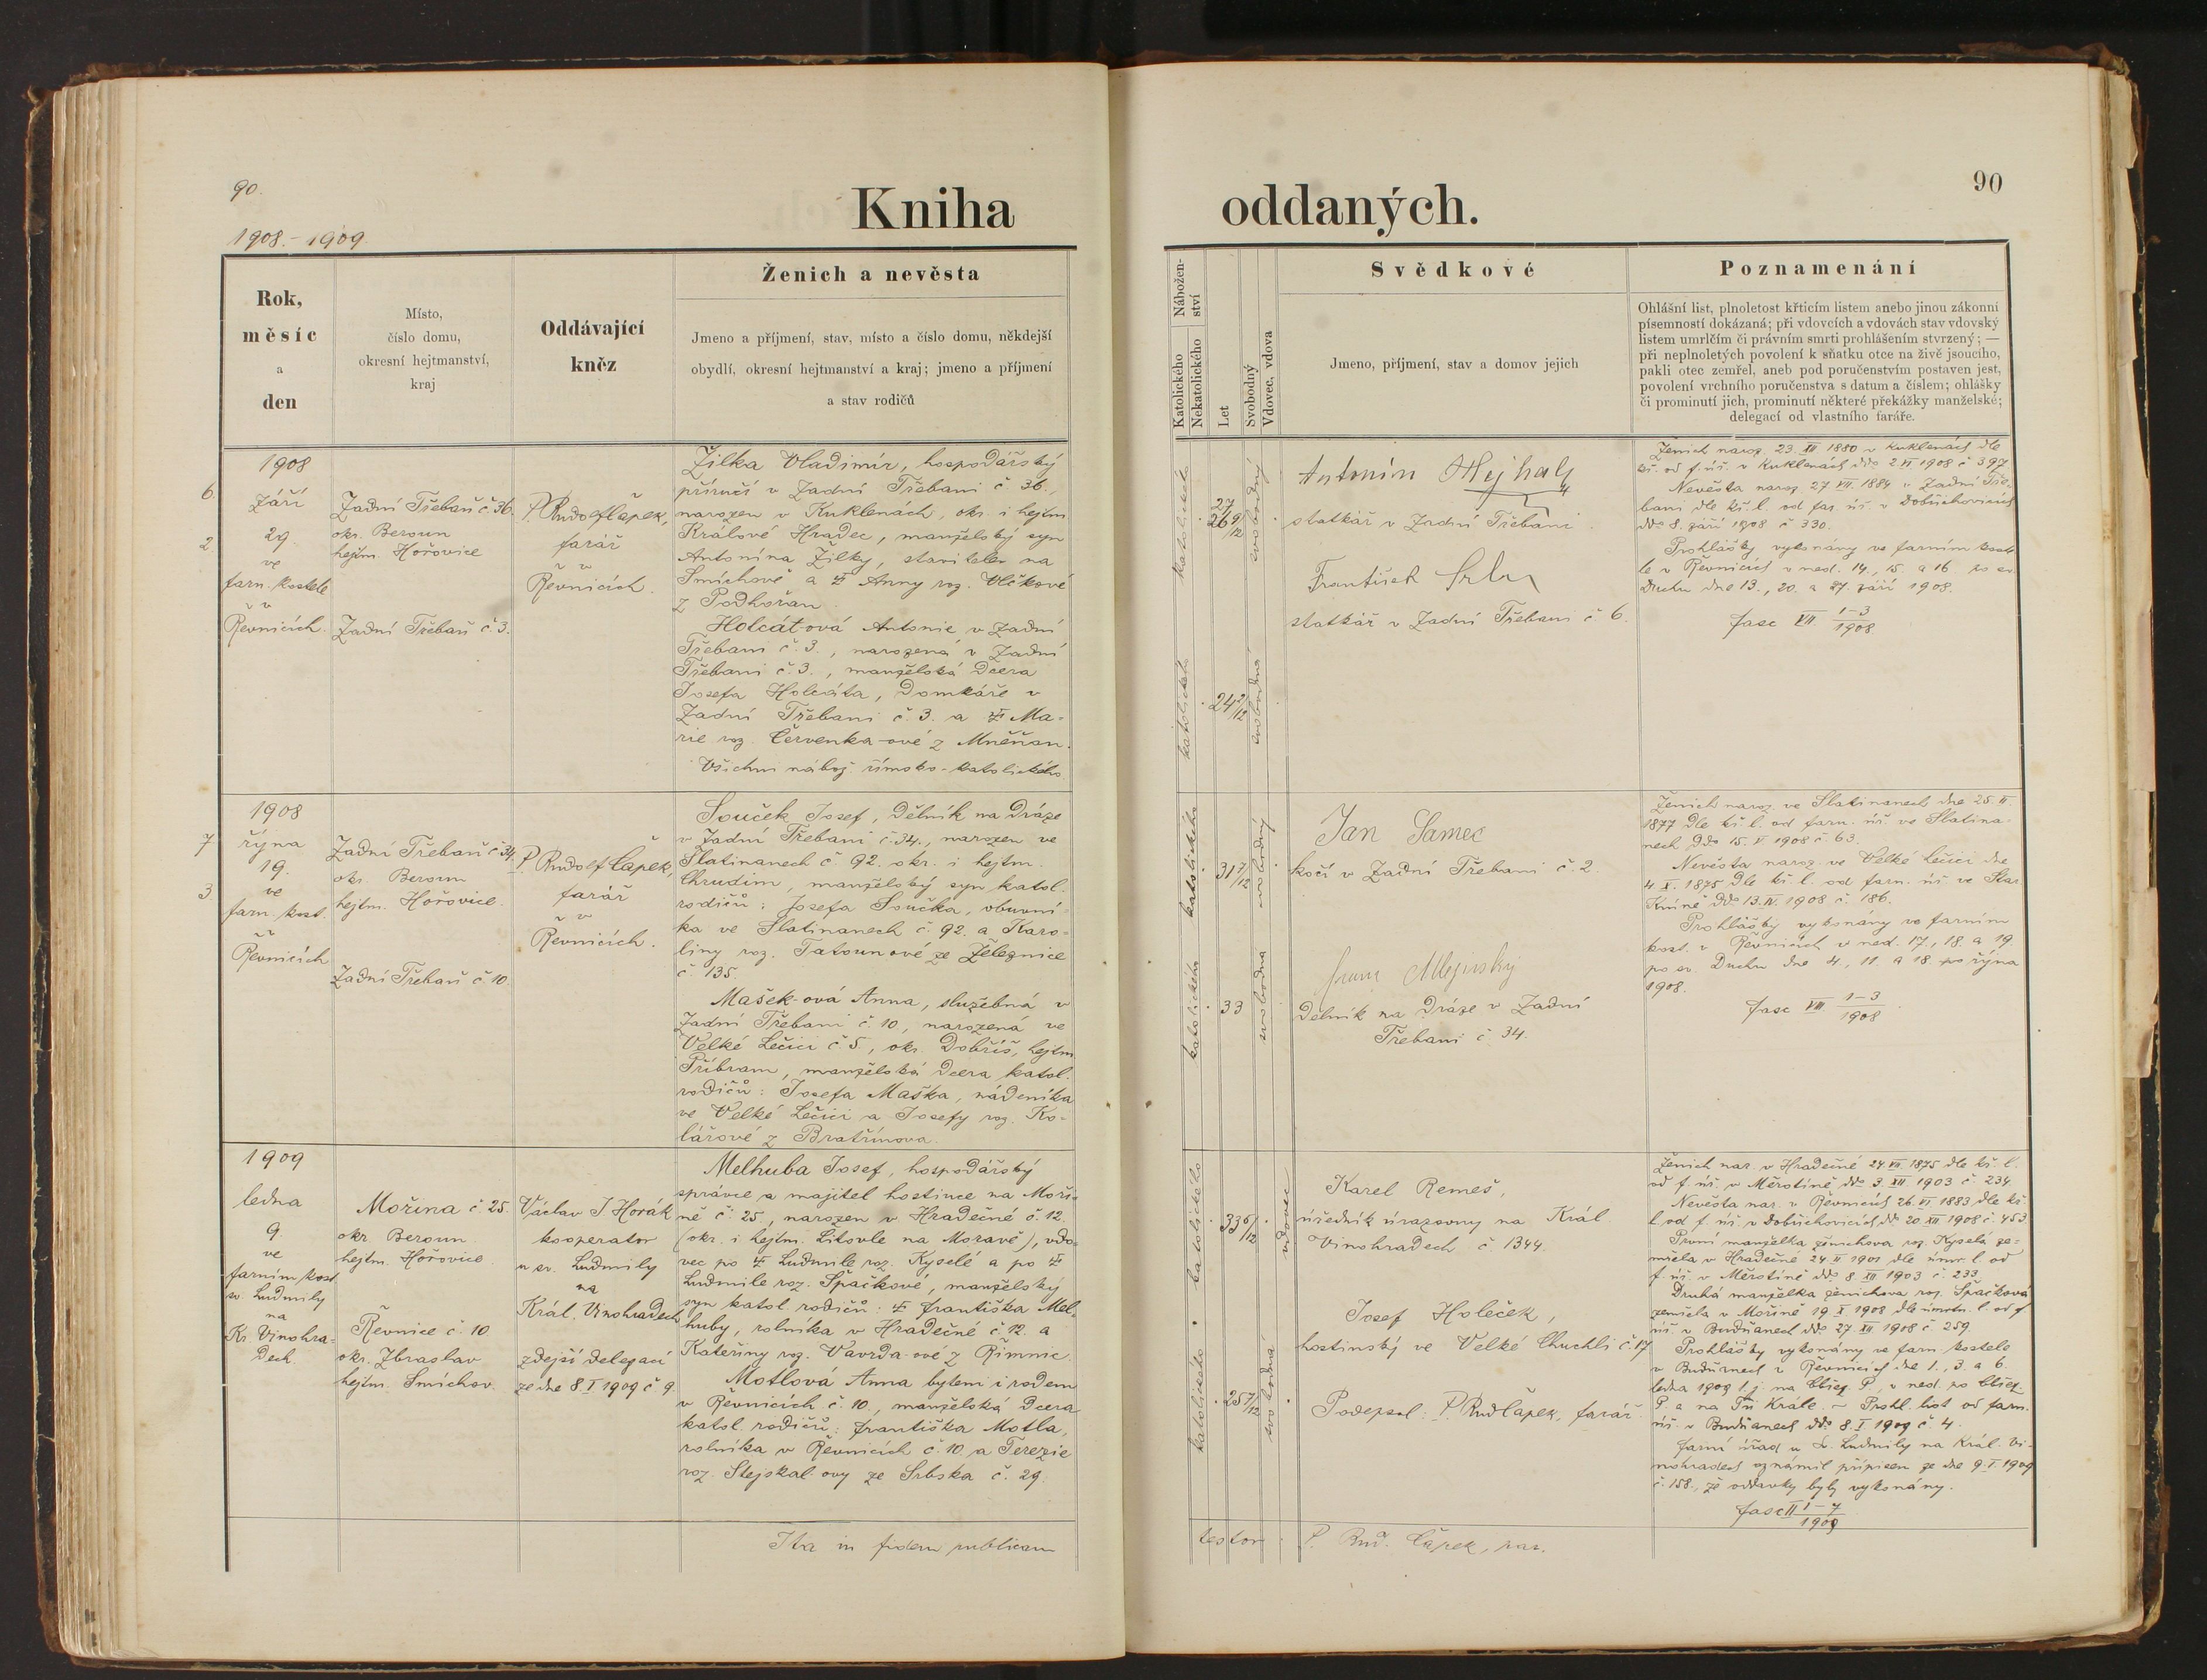 90.
1908.-1909.
Kniha
Rok,
měsíc
a
den
Místo,
číslo domu,
okresní hejtmanství,
kraj
Oddávající
kněz
Ženich a nevěsta
Jmeno a příjmení, stav, místo a číslo domu, někdejší
obydlí, okresní hejtmanství a kraj; jmeno a příjmení
a stav rodičů
6.
2.
1908
září
29.
ve
farn. kostele
v
Řevnicích.
Zadní Třebaň č 36.
okr. Beroun
hejtm. Hořovice
Zadní Třebaň č. 3.
P. Rudolf Čapek,
farář
v
Řevnicích.
Žilka Vladimír, hospodářský
příručí v Zadní Třebani č 36.,
narozen v Kuklenách, okr. i hejtm
Králové Hradec, manželský syn
Antonína Žilky, stavitele na
Smíchově a † Anny roz. Vlčkové
z Podhořan.
Holcát-ová Antonie v Zadní
Třebani č. 3., narozená v Zadní
Třebani č. 3., manželská dcera
Josefa Holcáta, domkáře v
Zadní Třebani č. 3. a † Ma-
rie roz. Červenka-ové z Mněňan.
Všichni nábož. římsko-katolického
7
3
1908
října
19.
ve
farn. kost.
v
Řevnicích
Zadní Třebaň č 34.
okr. Beroun
hejtm. Hořovice.
Zadní Třebaň č 10.
P. Rudolf Čapek,
farář
v
Řevnicích.
Souček Josef, dělník na dráze
v Zadní Třebani č. 34., narozen ve
Slatinanech č. 92. okr. i hejtm.
Chrudim, manželský syn katol.
rodičů: Josefa Součka, obuvní-
ka ve Slatinanech č. 92. a Karo-
liny roz. Tatounové ze Železnice
č. 135.
Mašek-ová Anna, služebná v
Zadní Třebani č. 10, narozená ve
Velké Lečici č 5., okr. Dobříš, hejtm.
Příbram, manželská dcera katol.
rodičů: Josefa Maška, nádeníka
ve Velké Lečici a Josefy roz. Ko-
lářové z Bratřínova.
1909
ledna
9.
ve
farním kost.
sv. Ludmily
na
Kr. Vinohra-
dech.
Mořina č. 25.
okr Beroun.
hejtm. Hořovice.
Řevnice č. 10
okr. Zbraslav
hejtm. Smíchov.
Václav J Horák
kooperator
u sv. Ludmily
na
Král. Vinohradech
zdejší delegací
ze dne 8. I 1909 č 9.
Melhuba Josef, hospodářský
správce a majitel hostince na Moři-
ně č. 25., narozen v Hradečné č. 12.
(okr. i hejtm. Litovle na Moravě), vdo-
vec po † Ludmile roz. Kyselé a po †
Ludmile roz. Špačkové, manželský
syn katol. rodičů: † Františka Mel-
huby, rolníka v Hradečné č. 12. a
Kateřiny roz. Vavrda-ové z Řimnic.
Motlová Anna bytem i rodem
v Řevnicích č. 10., manželská dcera
katol. rodičů: Františka Motla,
rolníka v Řevnicích č. 10 a Terezie
roz. Stejskal-ovy ze Srbska č. 29.
Ita in fidem publicam
90
oddaných.
Nábožen-
ství
Katolického
Nekatolického
Let
Svobodný
Vdovec, vdova
Svědkové
Jmeno, příjmení, stav a domov jejich
Poznamenání
Ohlášní list, plnoletost křticím listem anebo jinou zákonní
písemností dokázaná; při vdovcích a vdovách stav vdovský
listem umrlčím či právním smrti prohlášením stvrzený; —
při neplnoletých povolení k sňatku otce na živě jsoucího,
pakli otec zemřel, aneb pod poručenstvím postaven jest,
povolení vrchního poručenstva s datum a číslem; ohlášky
či prominutí jich, prominutí některé překážky manželské;
delegací od vlastního faráře.
katolického
27
26 9/12
svobodný
katolického
24 2/12
svobodná
Antonín
statkář v Zadní Třebani
František
statkář v Zadní Třebani č 6.
Ženich naroz. 23. XII 1880 v Kuklenách dle
kř. od f. úř. v Kuklenách ddo 2. VI 1908 č 397
Nevěsta naroz. 27. VII. 1884 v Zadní Tře-
bani dle kř. l. od far. úř. v Dobřichovicích
ddo 8. září 1908 č 330.
Prohlášky vykonány ve farním koste-
le v Řevnicích v ned. 14., 15. a 16. po sv.
Duchu dne 13., 20. a 27. září 1908.
fasc VII. 1-3/1908
katolického
31 7/12
svobodný
katolického
33
svobodná
Jan Samec
kočí v Zadní Třebani č. 2.
dělník na dráze v Zadní
Třebani č. 34.
Ženich naroz. ve Slatinanech dne 25. II.
1877 dle kř. l. od farn. úř. ve Slatina-
nech ddo 15. V 1908 č. 63.
Nevěsta naroz. ve Velké Lečici dne
4 X. 1875 dle kř. l. od farn. úř. ve Star.
Kníně ddo 13. IV. 1908 č. 186.
Prohlášky vykonány ve farním
kost. v Řevnicích v ned. 17., 18. a 19.
po sv. Duchu dne 4., 11. a 18. října
1908.
fasc VII 1-3/1908
katolického
33 6/12
vdovec
katolického
25 7/12
svobodná
Karel Remeš,
úředník úrazovny na Král
Vinohradech č. 1344.
Josef Holeček,
hostinský ve Velké Chuchli č. 17
Podepsal: P. Rud Čapek, farář.
Ženich nar. v Hradečné 24. VI. 1875 dle kř. l.
od f. úř. v Měrotíně ddo 3. XII 1903 č. 234.
Nevěsta nar. v Řevnicích 26. VI 1883 dle kř.
l. od f. úř. v Dobřichovicích ddo 20. XII 1908 č. 453.
První manželka ženichova roz. Kyselá ze-
mřela v Hradečné 24. II 1901 dle úmr. l. od
f. úř. v Měrotíně ddo 8 XII 1903 č. 233.
Druhá manželka ženichova roz. Špačková
zemřela v Mořině 19. X 1908 dle úmrtn. l. od f.
úř. v Budňanech ddo 27 XII 1908 č. 259.
Prohlášky vykonány ve farn. kostele
v Budňanech v Řevnicích dne 1., 3. a 6.
ledna 1909 t. j. na Obřez. P., v ned. po Obřez.
P. a na Tři Krále. - Prohl. list od farn.
úř. v Budňanech ddo 8. I 1909 č. 4.
Farní úřad u sv. Ludmily na Král. Vi-
nohradech oznámil přípisem ze dne 9. I. 1909
č. 158., že oddavky byly vykonány.
fasc II 1-7/1909
testor P. Rud. Čapek, par.